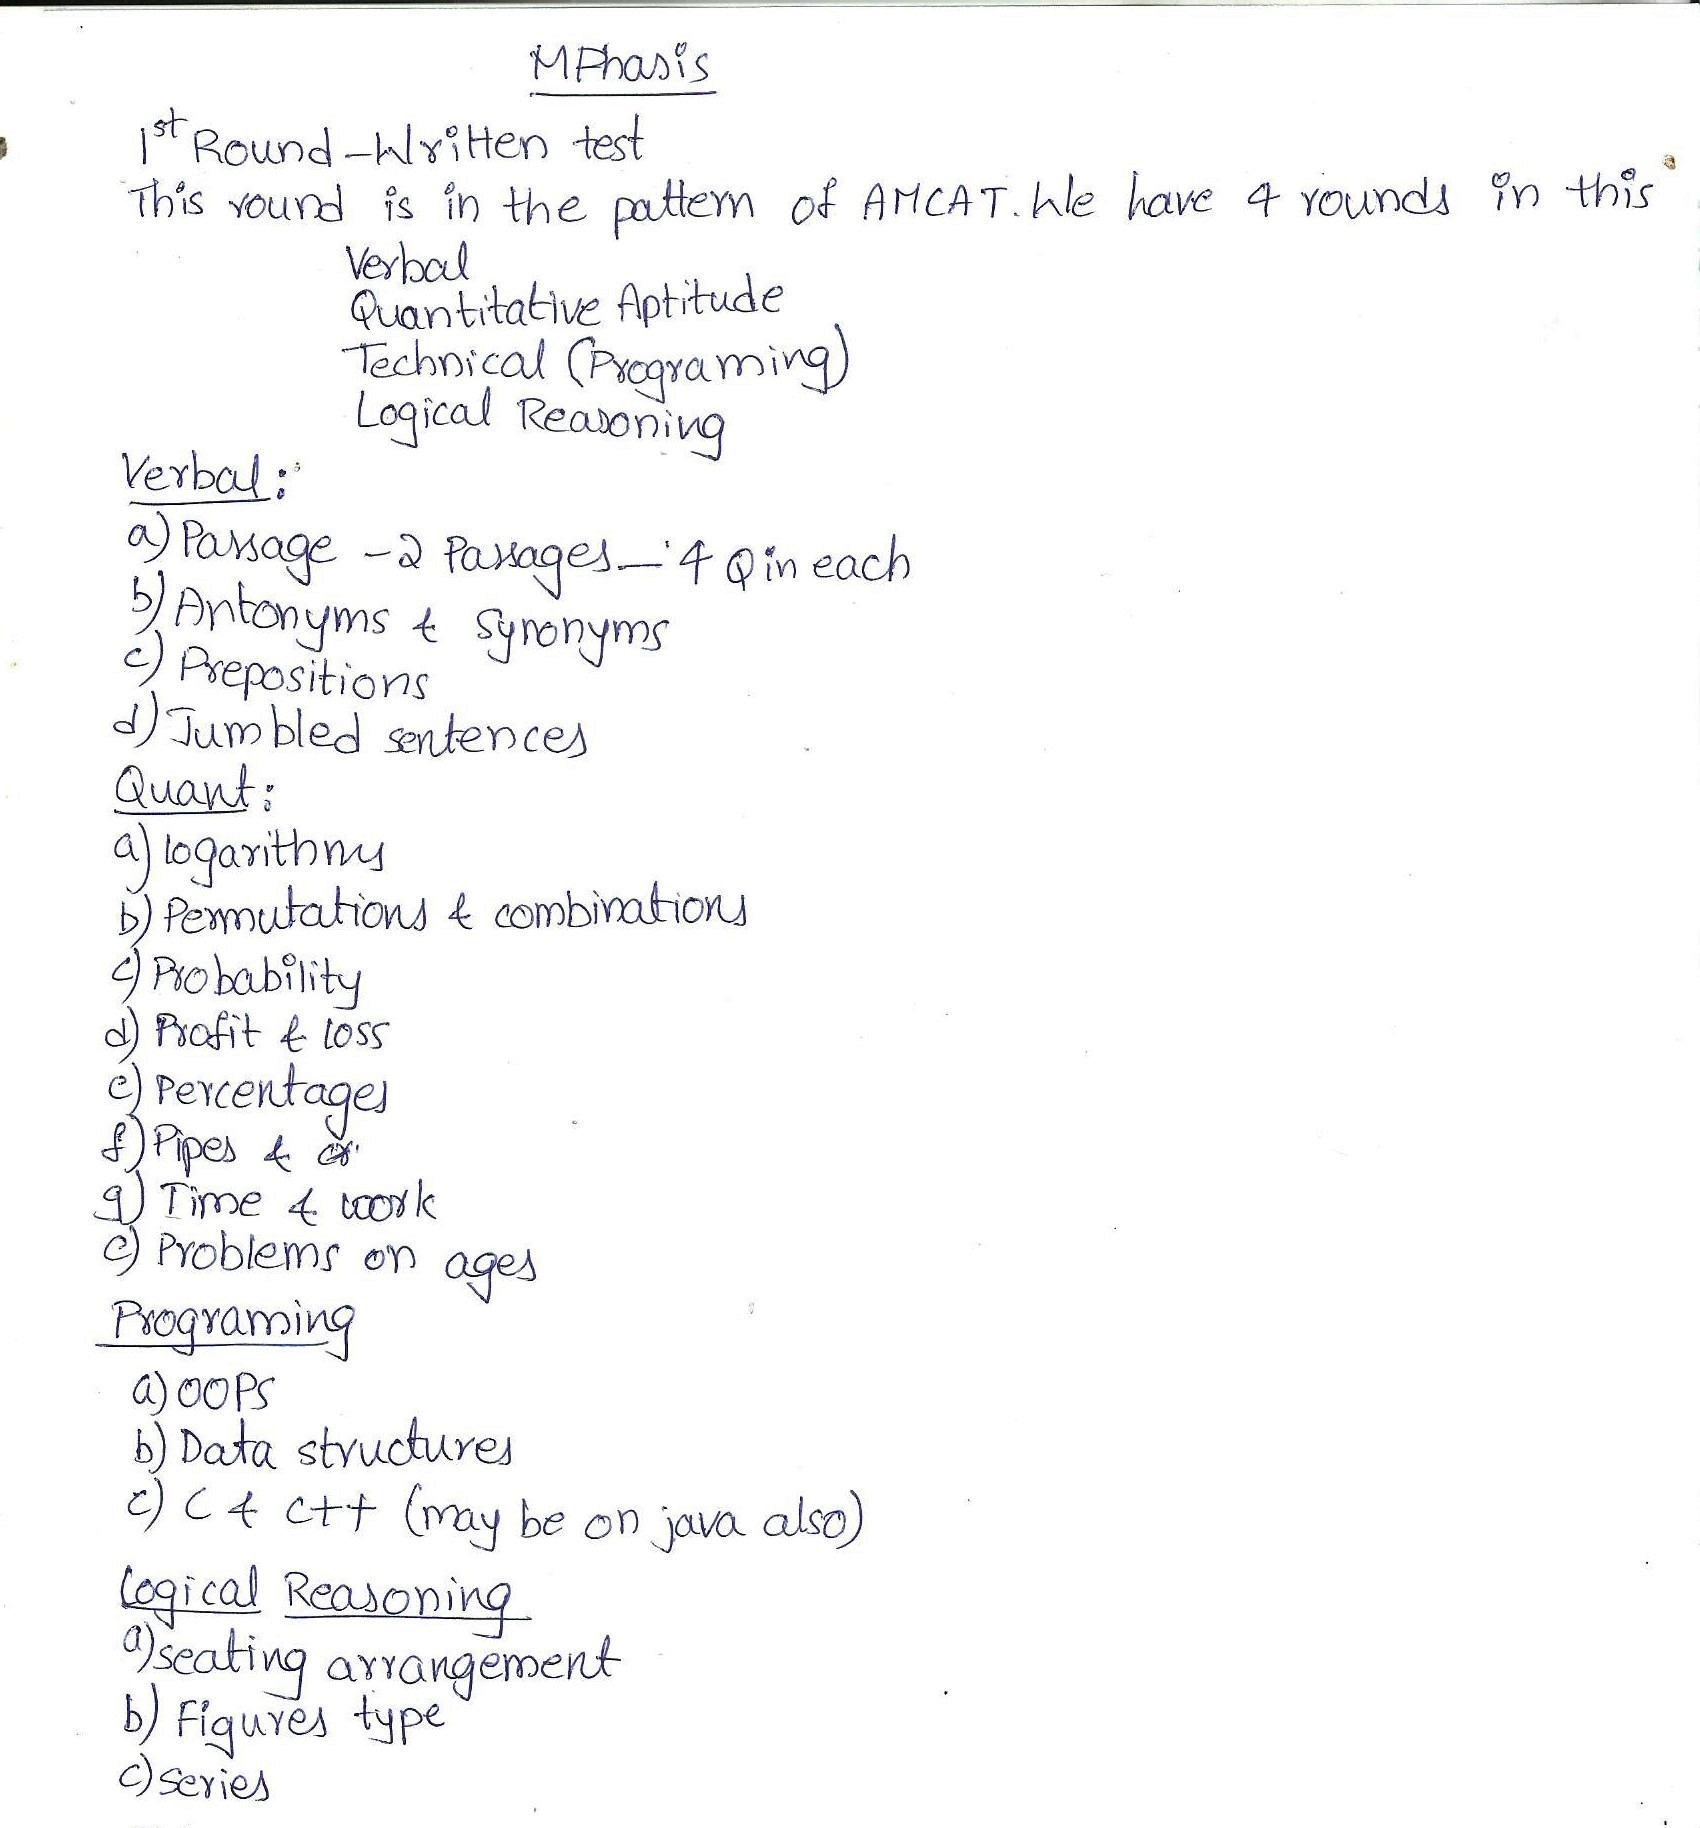 MPhasis
1st Round-Written test
This round is in the pattern of AMCAT. We have 4 rounds in this
Verbal
Quantitative Aptitude
Technical (Programing)
Logical Reasoning
Verbal:
a) Passage - 2 Passages - 4 Q in each
b) Antonyms & Synonyms
c) Prepositions
d) Jumbled sentences
Quant:
a) logarithms
b) Permutations & combinations
c) Probability
d) Profit & loss
e) Percentages
f) Pipes &
g) Time & work
e) Problems on ages
Programing
a) OOPS
b) Data structures
c) C & C++ (may be on java also)
Logical Reasoning
a) seating arrangement
b) Figures type
c) series